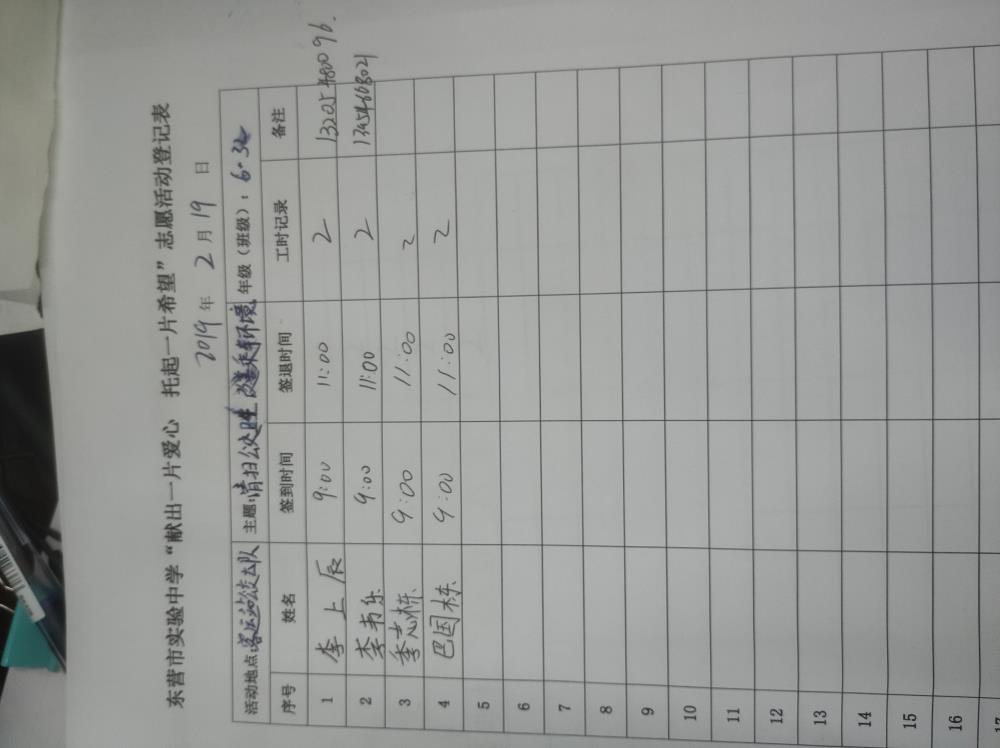 东营市实验中学“献出一片爱心 托起一片希望”志愿活动登记表
2019年 2月19日
活动地点:客运站公交车队 主题:清扫公交卫生 改善乘车环境 年级(班级):6.32
序号 姓名 签到时间 签退时间 工时记录 备注
1 李上辰 9:00 11:00 2 13205480096.
2 李书乐 9:00 11:00 2
3 季志栋 9:00 11:00 2
4 巴国栋 9:00 11:00 2
5
6
7
8
9
10
11
12
13
14
15
16
17